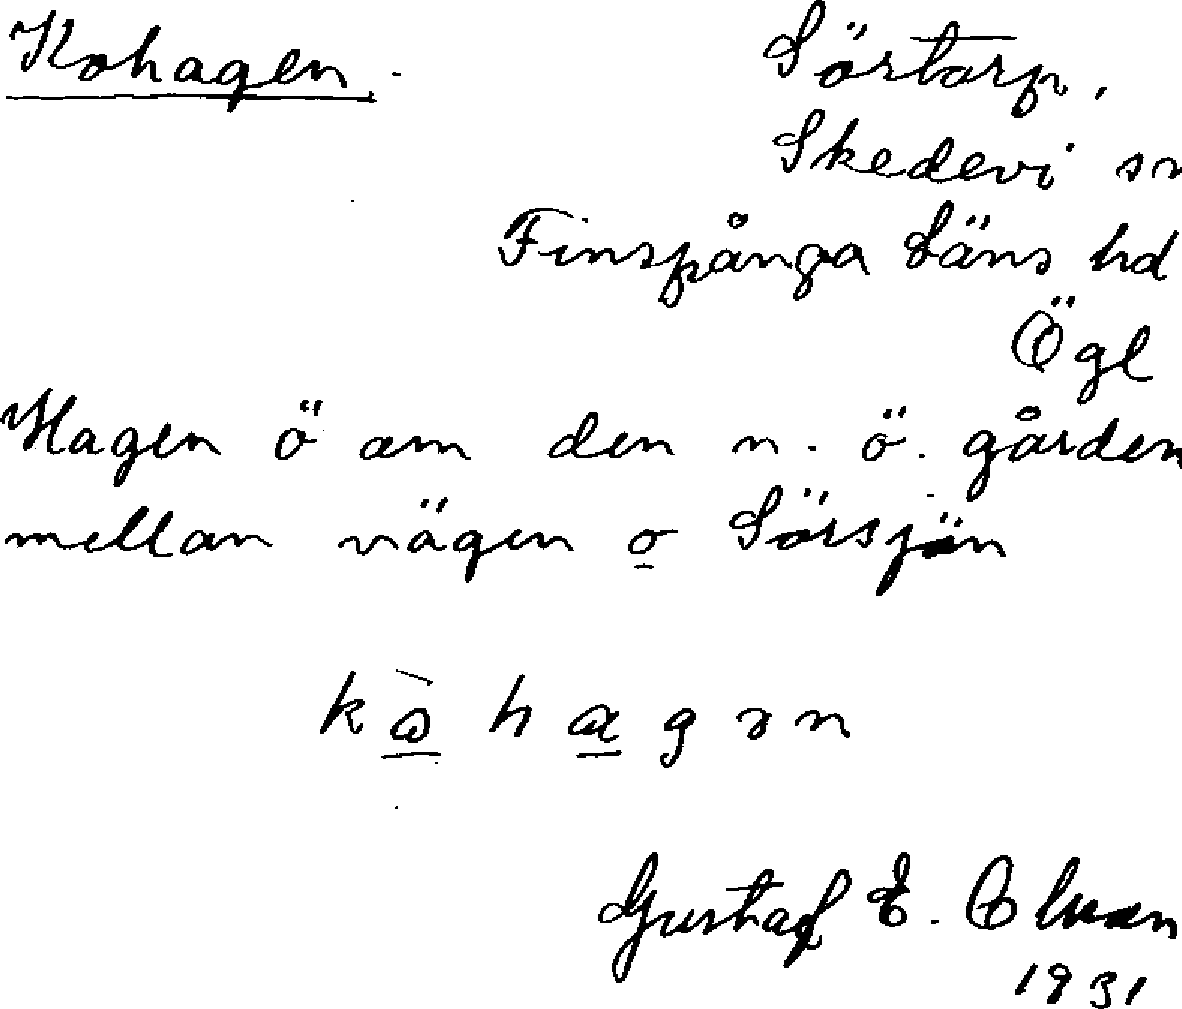 Kohagen. Sörtorp,
Skedevi sn
Finspånga Läns hd
Ögl
Hagen ö om den n. ö. gården
mellan vägen o Sörsjön
kò hagən
Gustaf E.
1931